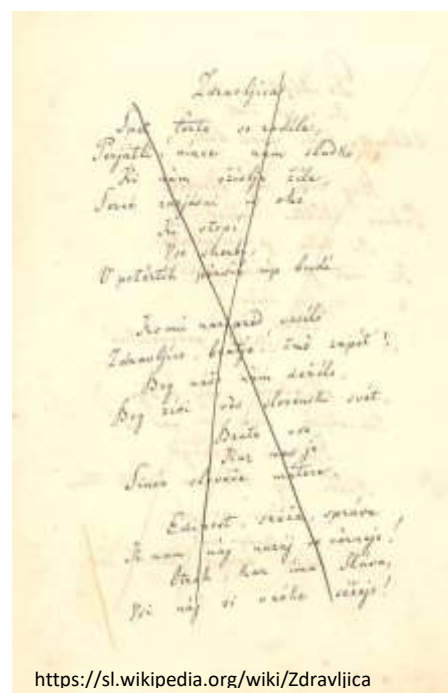 Zdravljica.
terte so rodile,
Perjatli vince nam sladko
Ki nam oživlja žile,
Serce razjasni in oko
Ki vtopi
Vse skerbi,
V potertih persih up budi
Komu narpred veselo
Zdravljico, bratje, čmo zapet'!
Bog našo nam deželo,
Bog živi ves slovenski svet.
Brate vse
Kar nas je
Sinov sloveče matere.
Edinost, sreča, sprava
K nam naj nazaj se vernejo!
Otrok, kar ima Slava,
Vsi naj si v roke sežejo!
https://sl.wikipedia.org/wiki/Zdravljica